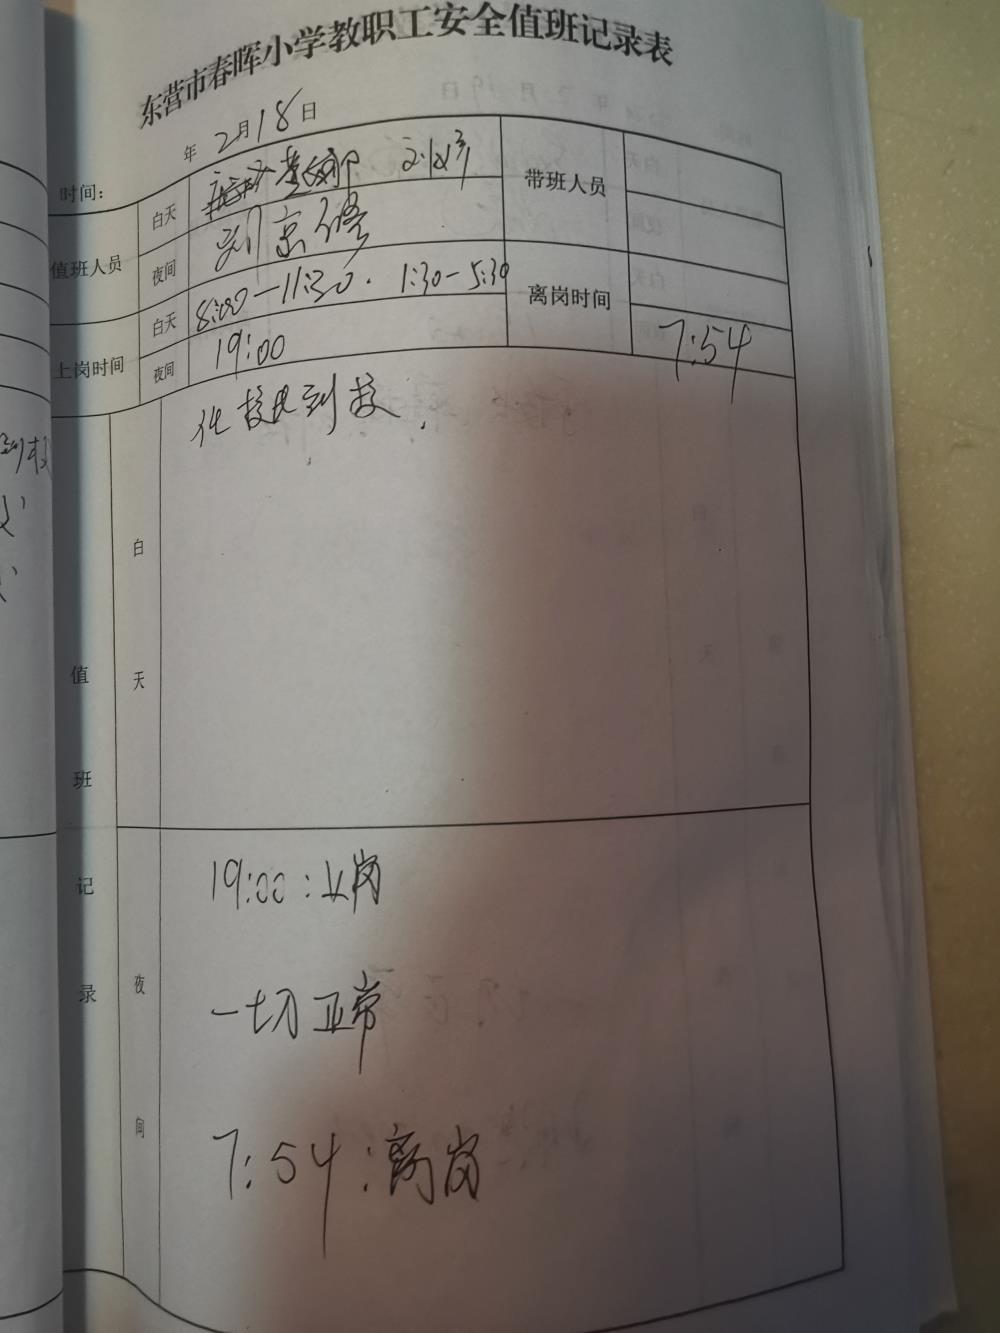 东营市春晖小学教职工安全值班记录表
时间: 年 2月18日
值班人员 白天 带班人员
夜间 刘京修
上岗时间 白天 8:00—11:30. 1:30—5:30 离岗时间
夜间 19:00 7:54
值班记录
白天 到校.
夜间 19:00:上岗
一切正常
7:54:离岗
到校